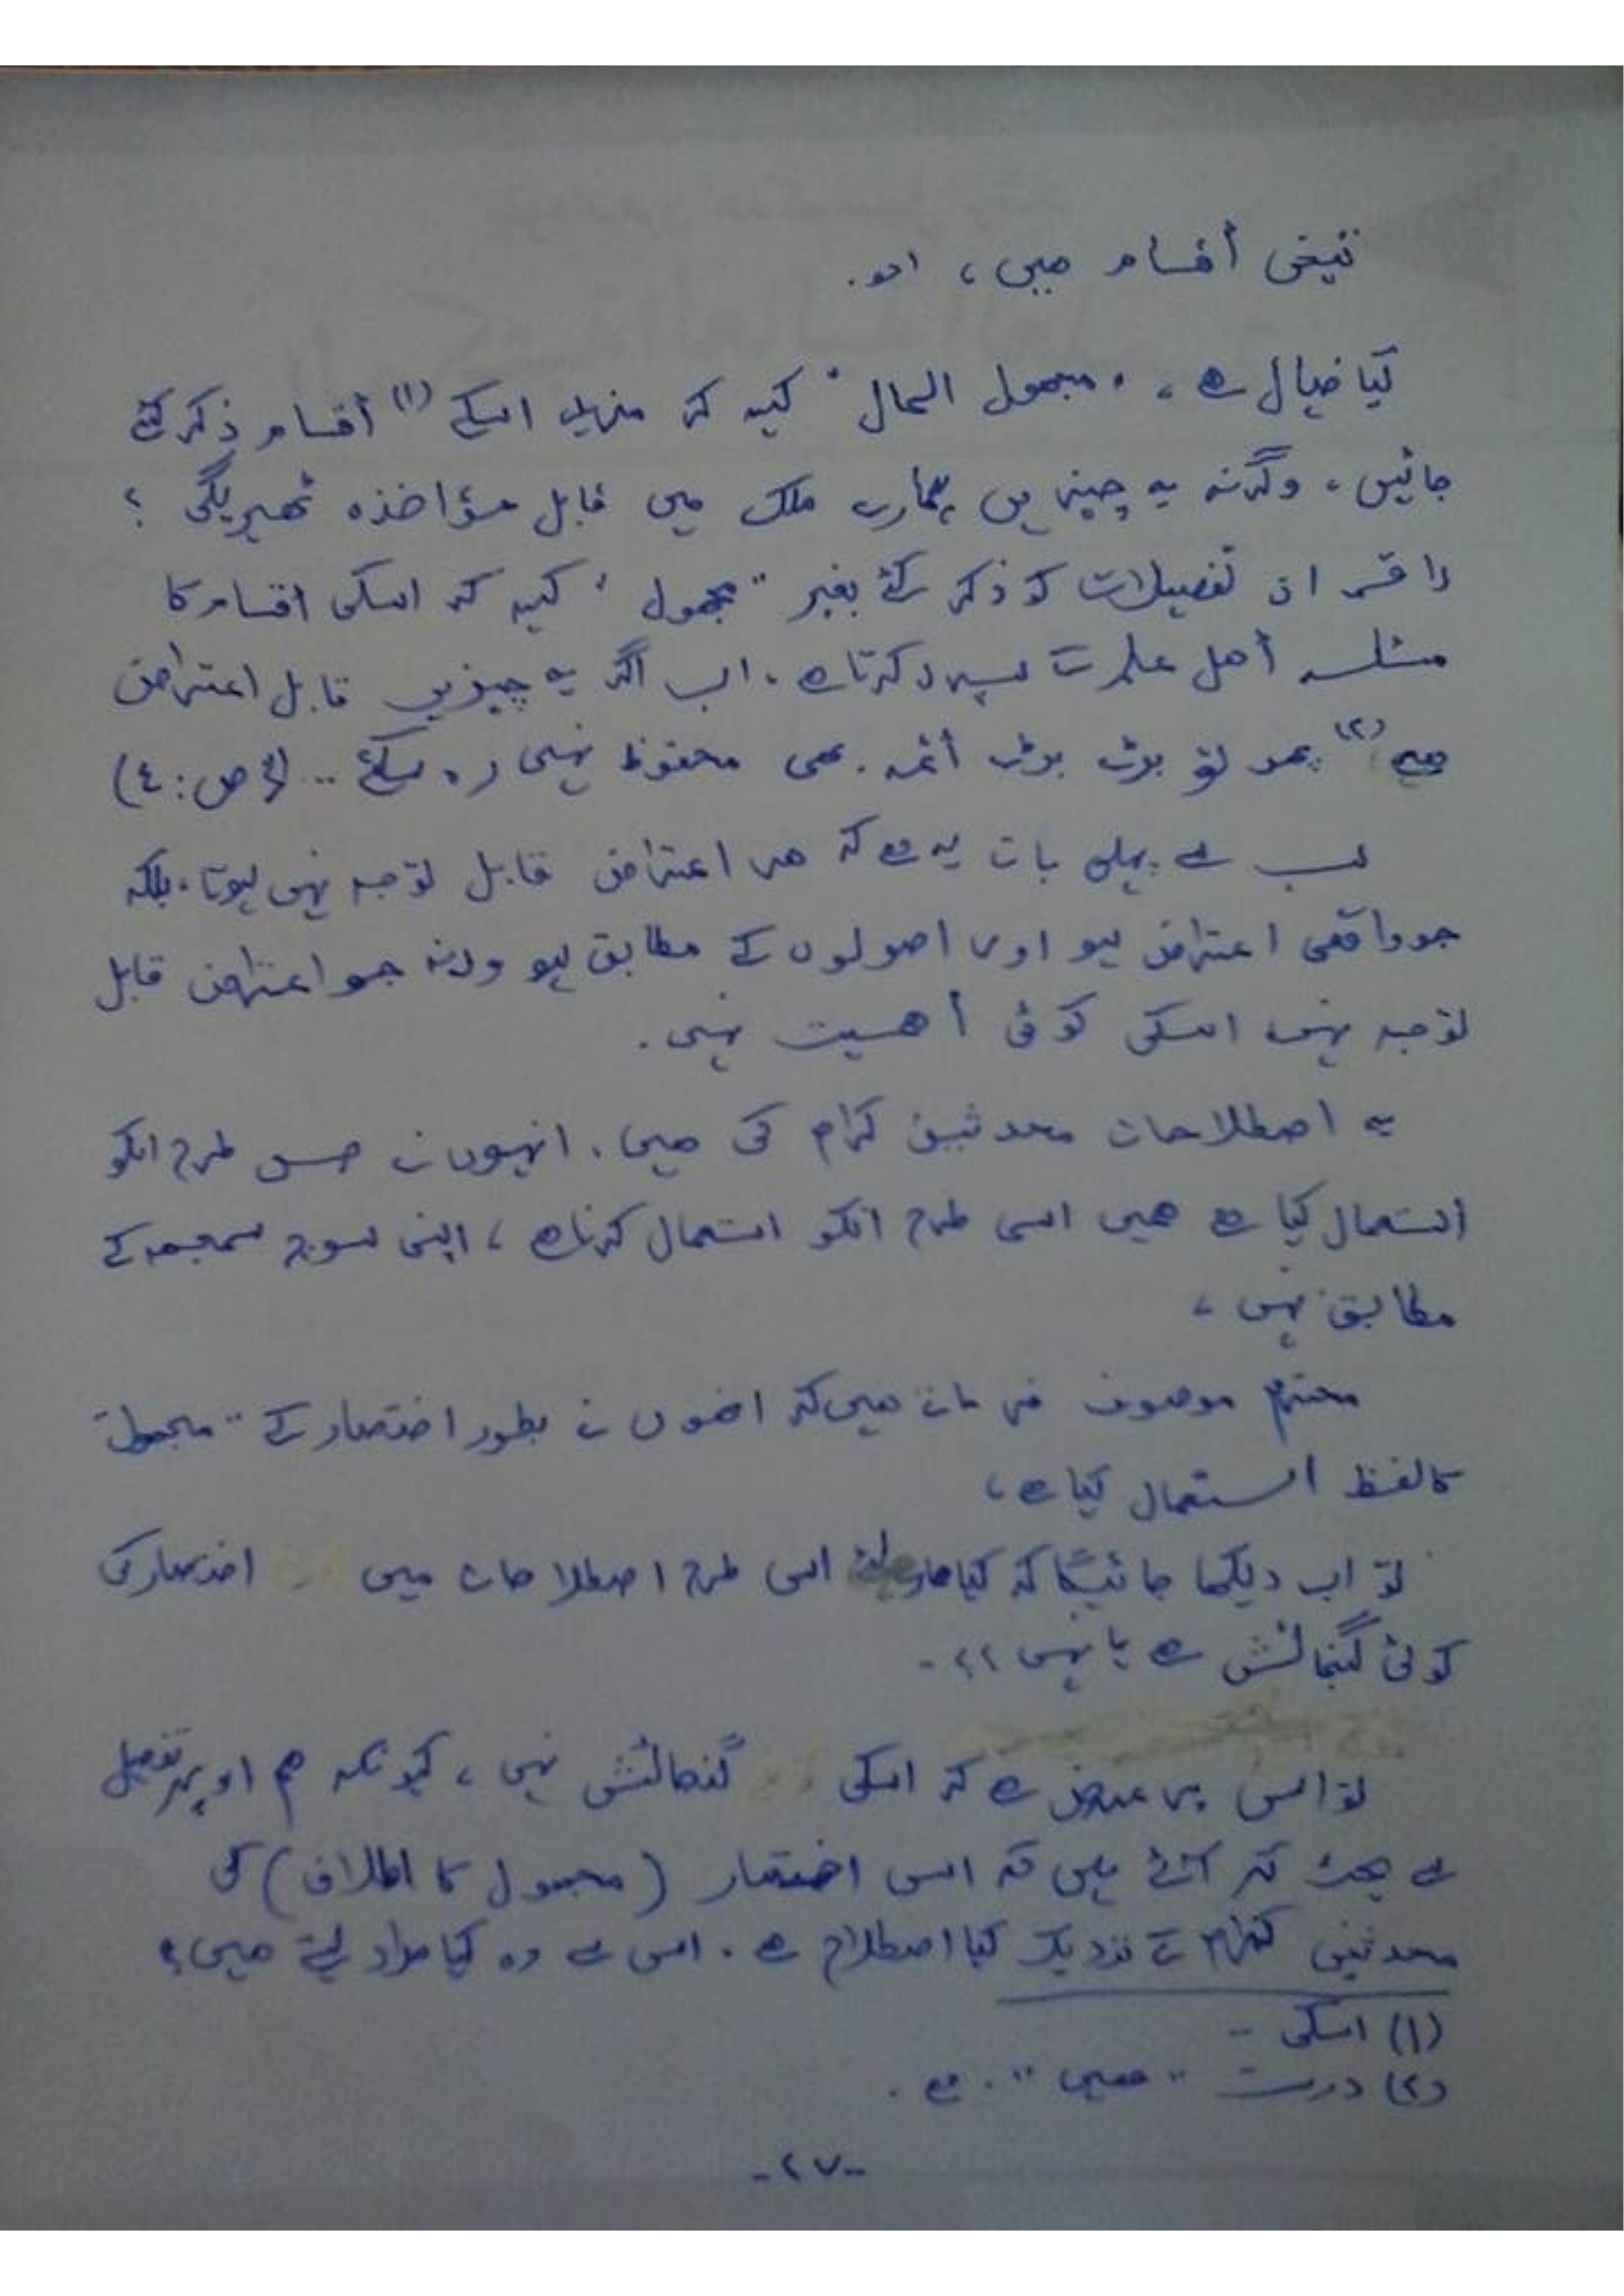 أقسام ہیں،
کیا خیال ہے، "مجہول الحال" کہہ کر اسکے (۱) أقسام ذکر کئے
جائیں، وگرنہ یہ چیزیں ہمارے ملک میں قابل مؤاخذہ ٹھہریگی ؟
راقم ان تفصیلات کو ذکر کئے بغیر "مجہول" کہہ کر اسکی اقسام کا
مسئلہ أهل علم کے سپرد کرتا ہے۔ اب اگر یہ چیزیں قابل اعتراض
ہے (۲) پھر تو بڑے بڑے أئمہ بھی محفوظ نہیں رہ سکتے .. (ص: ٤)
سب سے پہلی بات یہ ہے کہ هر اعتراض قابل توجہ نہیں ہوتا، بلکہ
جو واقعی اعتراض ہو اور اصولوں کے مطابق ہو ورنہ جو اعتراض قابل
توجہ نہیں اسکی کوئی أهمیت نہیں۔
یہ اصطلاحات محدثین کرام کی ہیں۔ انہوں نے جس طرح انکو
استعمال کیا ہے همیں اسی طرح انکو استعمال کرنا ہے، اپنی سوچ سمجھ کے
مطابق نہیں،
محترم موصوف فرماتے هیں کہ انھوں نے بطور اختصار کے "مجہول"
کا لفظ استعمال کیا ہے،
تو اب دیکھا جائیگا کہ کیا ھمارے لئے اسی طرح اصطلاحات میں اختصار کی
کوئی گنجائش ہے یا نہیں ؟؟۔
تو اس پر عرض ہے کہ اسکی گنجائش نہیں، کیونکہ ہم اوپر تفصیل
سے بحث کر آئے ہیں کہ اس اختصار (مجہول کا اطلاق) کی
محدثین کرام کے نزدیک کیا اصطلاح ہے۔ اس سے وہ کیا مراد لیتے هیں؟
(۱) اسکی ۔۔
(۲) درست "ہیں" ہے۔
-۲۷-